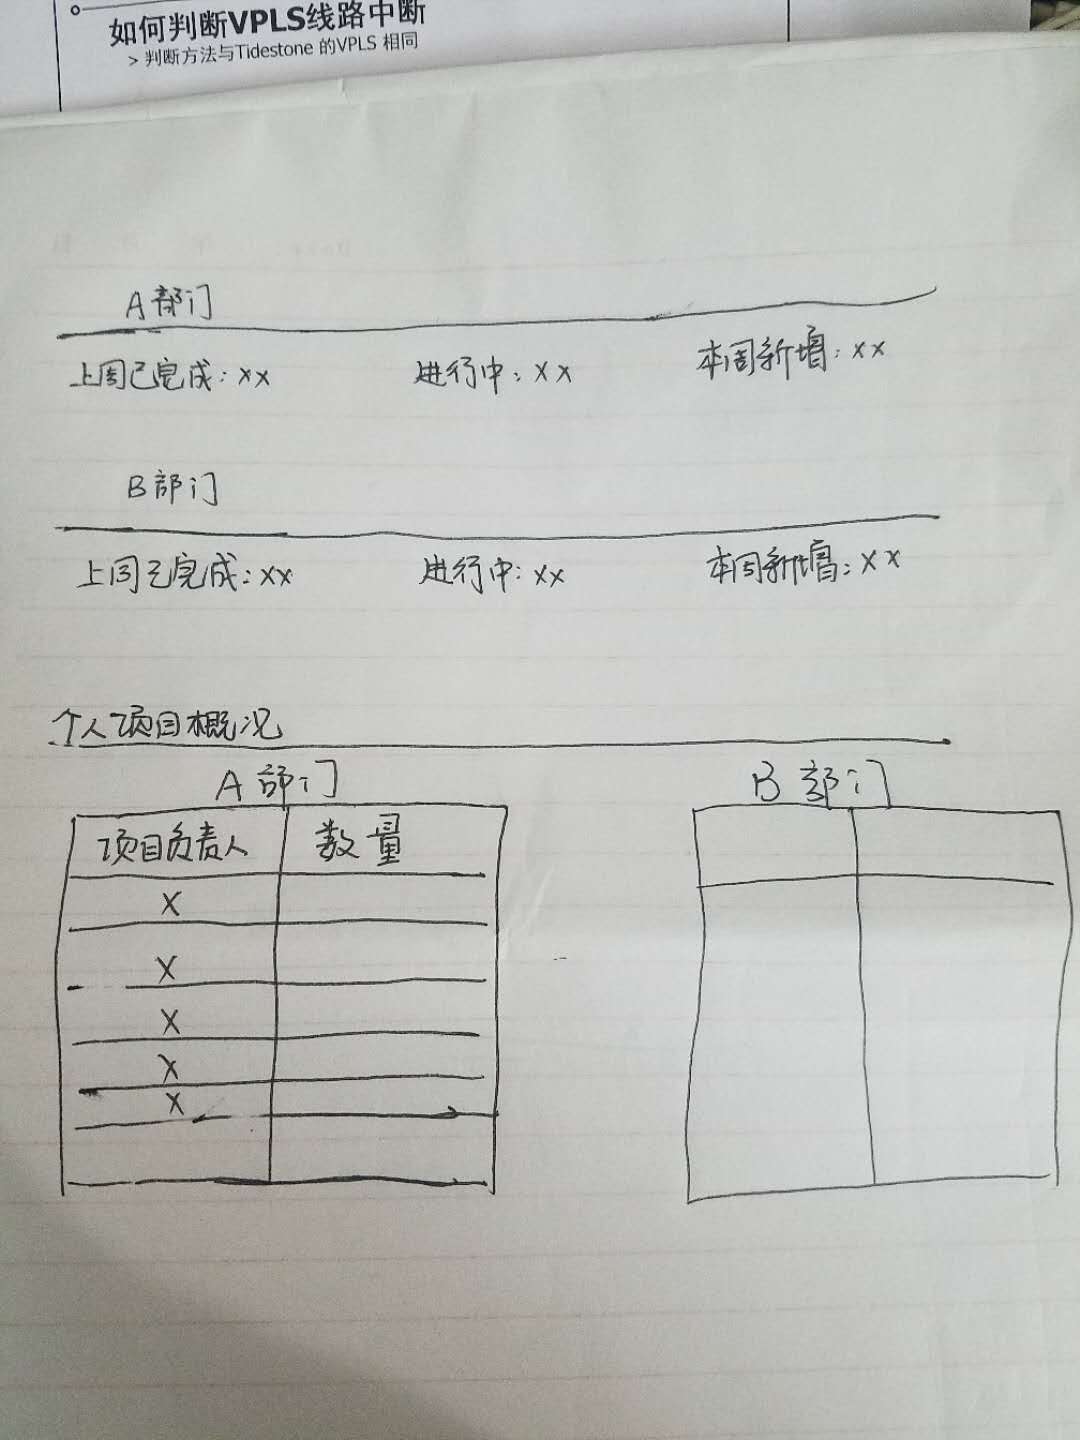 如何判断VPLS线路中断
> 判断方法与Tidestone 的VPLS 相同
A部门
上周已完成：xx 进行中：xx 本周新增：xx
B部门
上周已完成：xx 进行中：xx 本周新增：xx
个人项目概况
A部门 B部门
项目负责人 数量
X
X
X
X
X